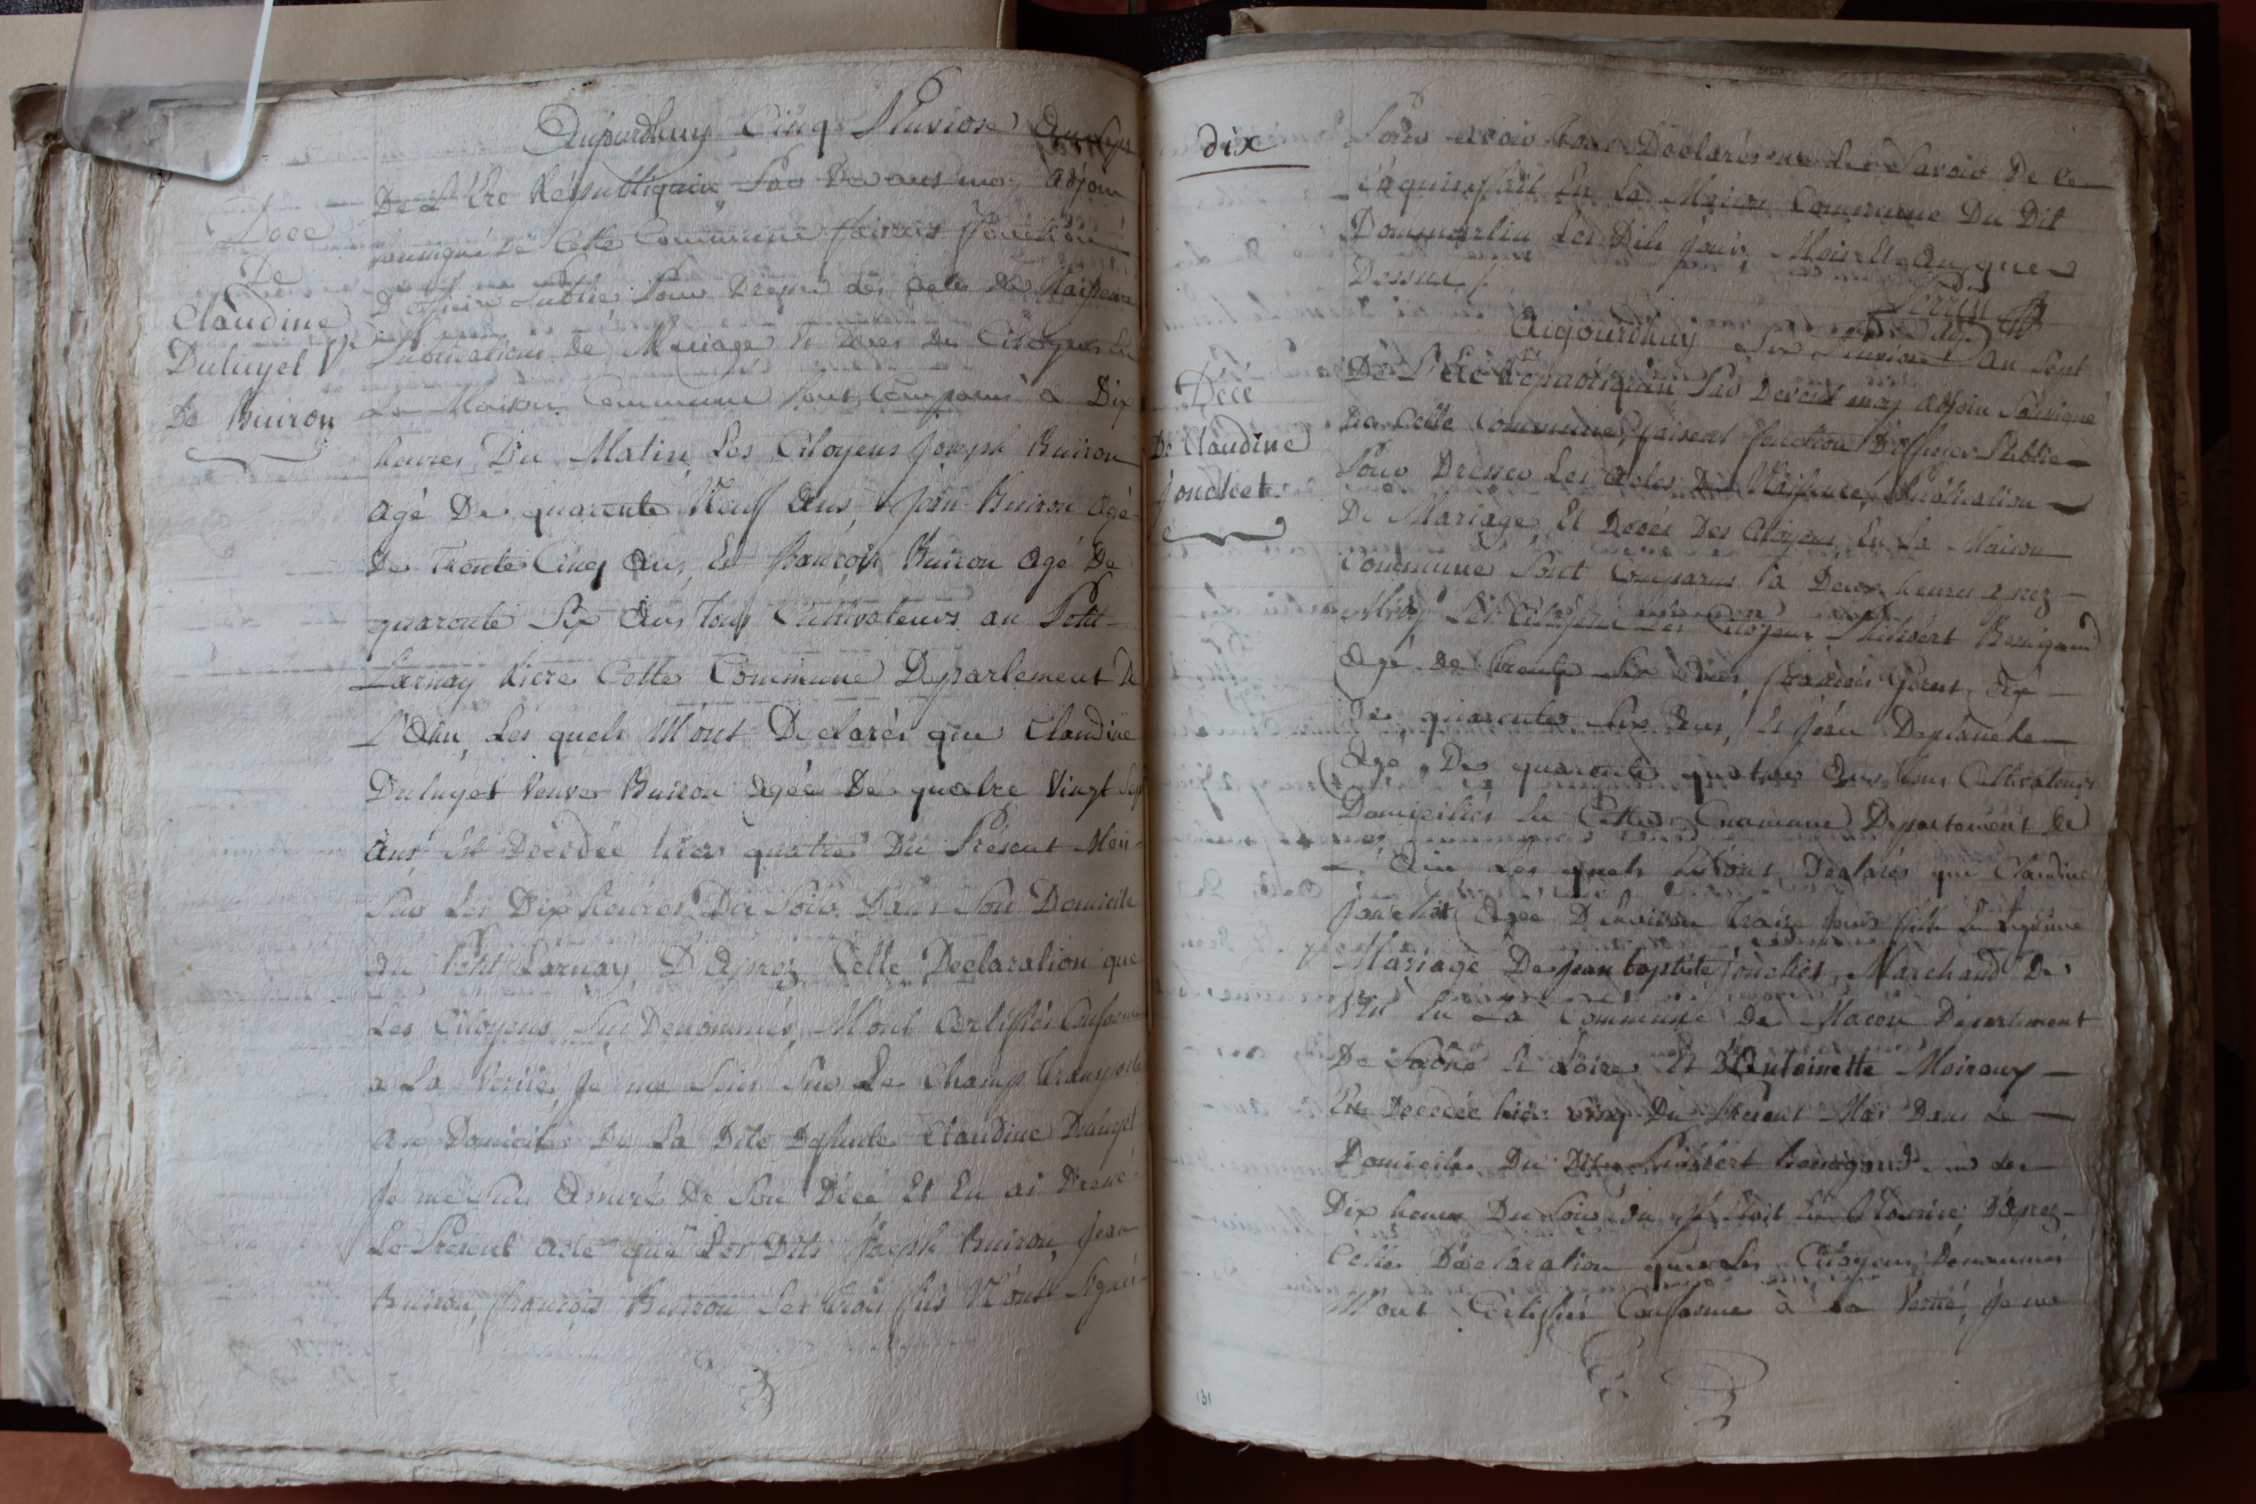 Aujourdhuy Cinq Pluviose An Sept
De L'Ere Republiquain, Par Devant moy Adjoin
sousigné De Cette Commune faisant fonction
D'officier Public Pour Dresser Les Actes De Naissance
Publications De Mariage, Et Deces Des Citoyens En
La Maison Commune Sont Comparus à Dix
heures Du Matin, Les Citoyens Joseph Buiron
Agé De quarente Neuf Ans, Jean Buiron Agé
De Trente Cinq Ans, Et françois Buiron Agé De
quarente Six Ans Tous Cultivateurs au Petit
Larnay Riere Cette Commune Departement De
L'Ain, Les quels M'ont Declarés que Claudine
Duluyet Veuve Buiron Agée De quatre Vingt Sept
Ans Est Décédée hier quatre Du Présent Mois
Sur Les Dix heures Du Soir Dans Son Domicile
Au Petit Larnay, D'Aprez Cette Declaration que
Les Citoyens Sus Denommés, M'ont Certifiés Conforme
a La Verité, Je me Suis Sur Le Champ Transporté
Au Domicile De La Dite Defunte Claudine Duluyet
Je me Suis Assuré De Son Décé Et En ai Dressé
Le Present Acte que Les Dits Joseph Buiron, Jean
Buiron, françois Buiron Ses trois fils N'ont Signé
Dece
De
Claudine
Duluyet Ve
De Buiron
dix
Pour avoir Declarés ne Le Savoir De Ce
Enquis, fait En La Maison Commune Du Dit
Dommartin Les Dits Jour, Mois Et An que
Dessus /.
adj
Aujourdhuy Six Pluviose An Sept
De L'Ere Republiquain Par Devant moy Adjoin Sousigné
De Cette Commune, faisant fonction D'officier Public
Pour Dresser Les Actes De Naissance, Publication
De Mariage, Et Decés Des Citoyens En La Maison
Commune Sont Comparus à Deux heures Aprez
Midy Les Citoyens Philibert Bourgaud
Agé De Trente Six Ans, françois Agé
De quarente Six Ans, Et Jean Deplanche
Agé De quarente quatre Ans Tous Cultivateurs
Domiciliés En Cette Commune Departement De
L'Ain Les quels M'ont Declarés que Claudine
Jonchet Agée D'Environ Traize Jours fille En Legitime
Mariage De Jean baptiste Jonchet Marchand De
En La Commune De Macon Departement
De Saône Et Loire Et D'Antoinette Moiroux
Est Decedée hier Cinq Du Présent Mois Dans Le
Domicile Du Dit Philibert Bourgaud sur Les
Dix heures Du Soir où Etoit En Nourice, D'Aprez
Cette Declaration que Les Citoyens Denommés
M'ont Certifiés Conforme à La Verité, Je me
Dece
De Claudine
Jonchet
131